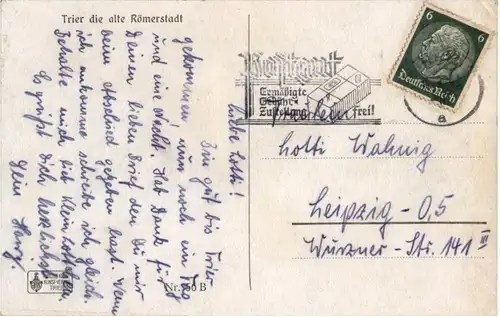 Trier die alte Römerstadt
Liebe Lotti!
Bin gut bis Trier
gekommen, nun noch ein Tag
und eine Nacht. Hab Dank für
Deinen lieben Brief den Du mir
beim Abschied gegeben hast. Wenn
ich ankomme schreibe ich gleich.
Behalte mich lieb
Es grüßt Dich herzlichst
Dein
Nr. 50 B
Postgut
Ermäßigte
Gebühr
Zustellung frei!
6 6
Deutsches Reich
a
Lotti Wahnig
Leipzig-O,5
Wurzner-Str. 141 III